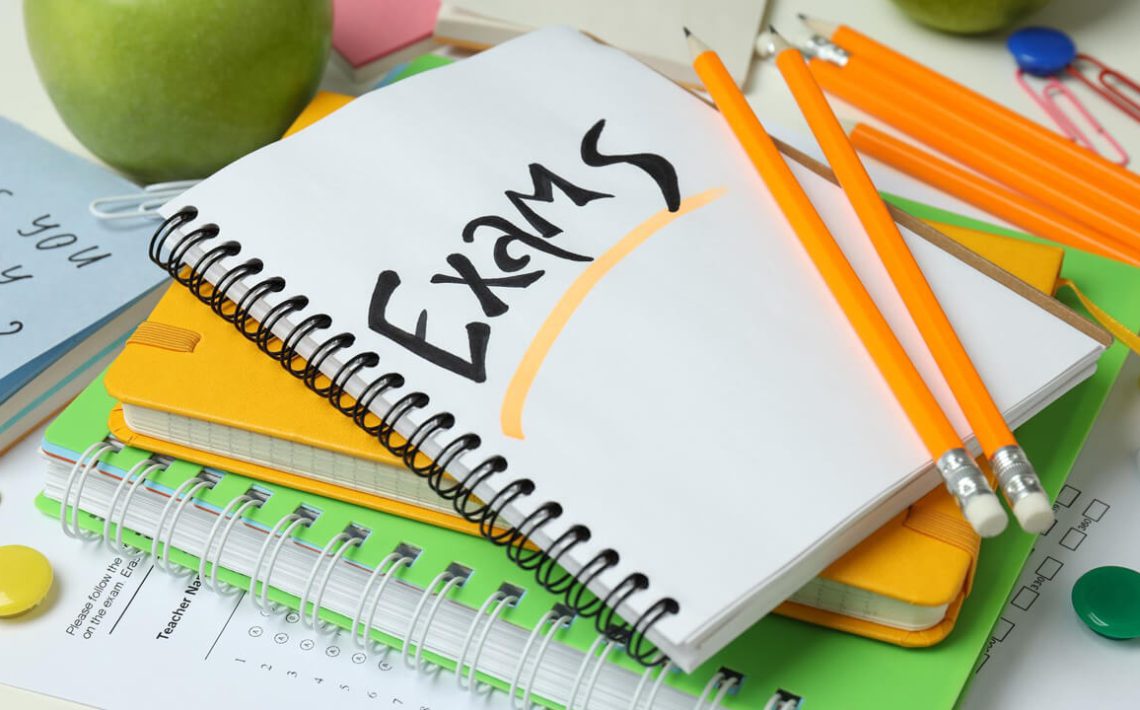 Exams
YOU
Please follow the
on the exam. Era
Teacher Na
1 2 3 4 5 6 7 8